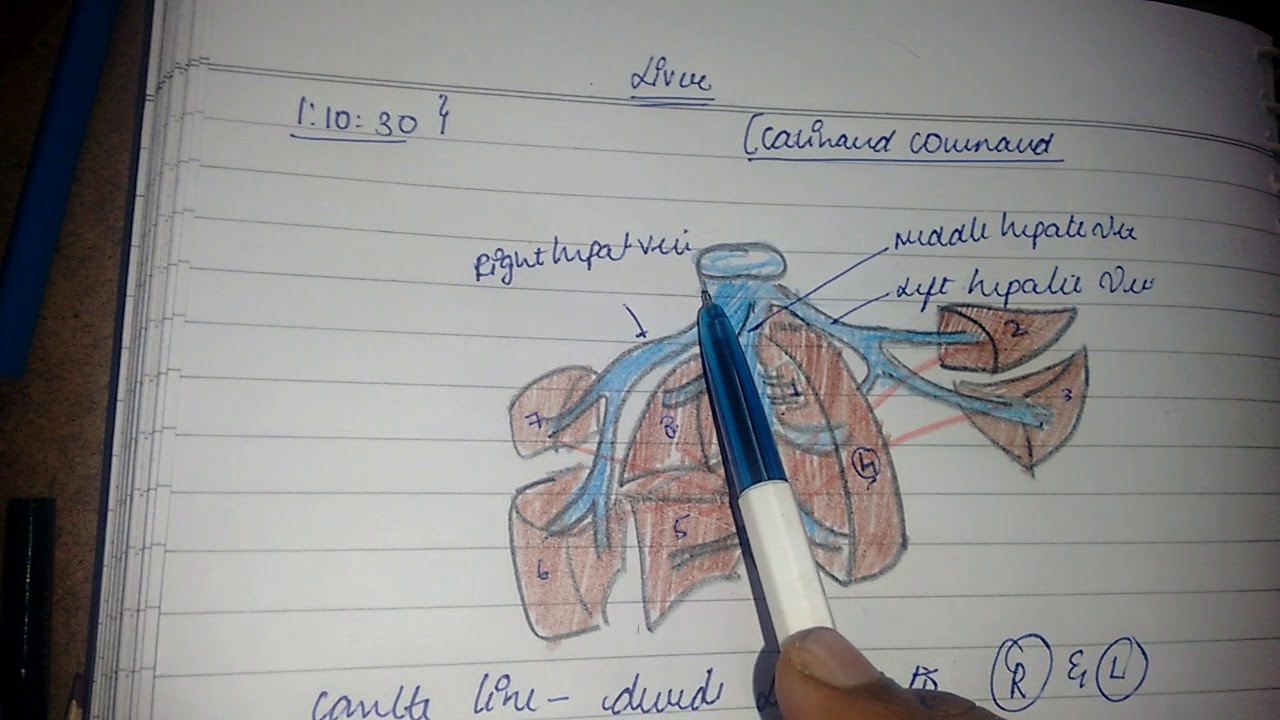 Liver
1:10:30 }
(Cauinaud Couinaud
Right hepat vei
Middle hepatic Vei
Left hepatic Vei
2
3
7
8
1
4
5
6
Cantle line - divide R & L